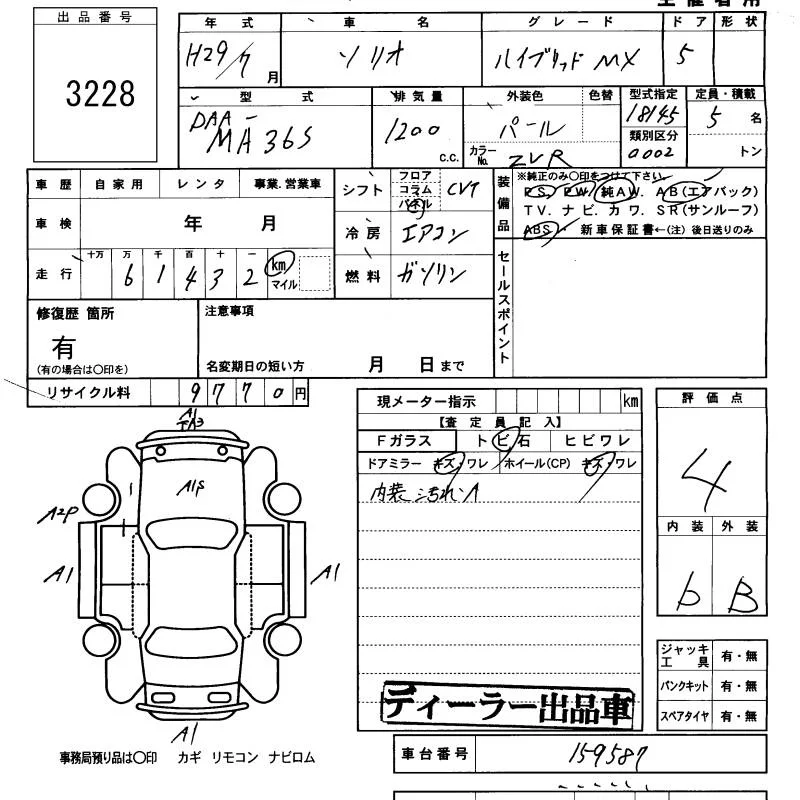 出品番号
3228
年式 車名 グレード ドア 形状
H29/7月 ソリオ ハイブリッド MX 5
型式 排気量 外装色 色替 型式指定 定員・積載
DAA-MA36S 1200 c.c. パール 18145 5名
カラーNo. ZVR 類別区分 0002 トン
車歴 自家用 レンタ 事業.営業車
シフト フロア コラム パネル CVT
装備品
※純正のみ〇印をつけて下さい。
PS. PW. 純AW. AB(エアバック)
TV. ナビ. カワ. SR(サンルーフ)
ABS・ 新車保証書←(注) 後日送りのみ
車検 年 月
冷房 エアコン
走行 十万 万 千 百 十 一
6 1 4 3 2 km マイル
燃料 ガソリン
セールスポイント
修復歴 箇所
有
(有の場合は〇印を)
注意事項
名変期日の短い方 月 日まで
リサイクル料 9770円
現メーター指示 km
【査定員記入】
Fガラス トビ石 ヒビワレ
ドアミラー キズ・ワレ ホイール(CP) キズ・ワレ
内装 汚れ.A
評価点
4
内装 外装
b B
A1
A2P
A1
A1
A1
ジャッキ工具 有・無
パンクキット 有・無
スペアタイヤ 有・無
ディーラー出品車
車台番号 159587
事務局預り品は〇印 カギ リモコン ナビロム